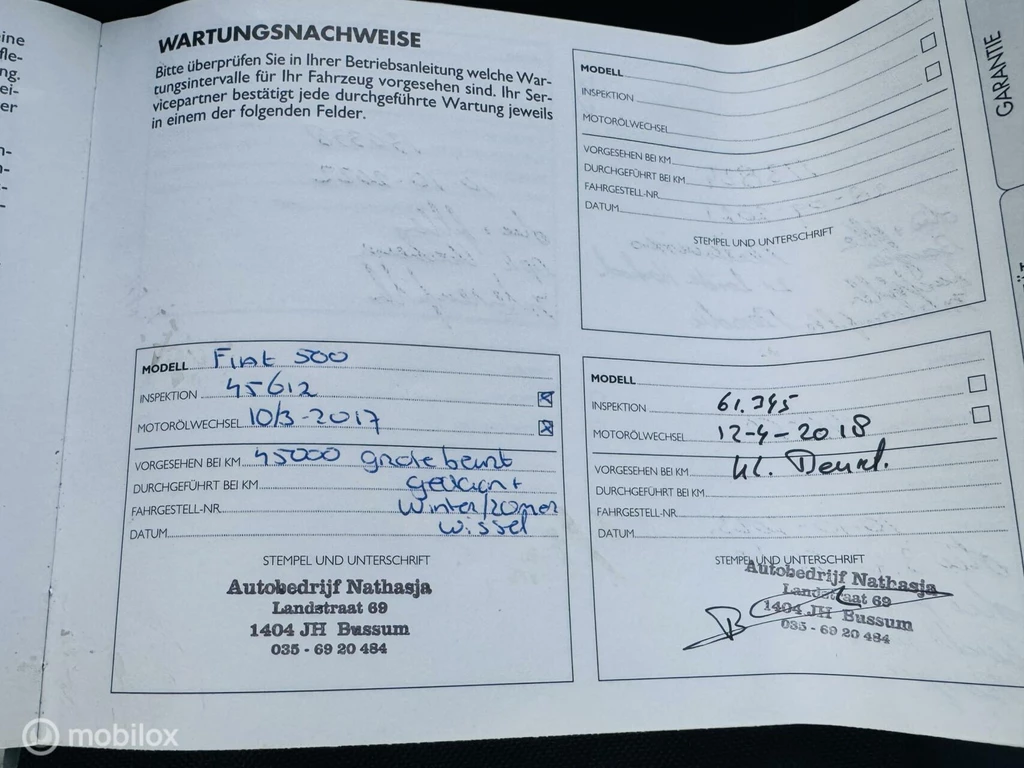 ine
fle-
ng.
ei-
er
n-
n-
WARTUNGSNACHWEISE
Bitte überprüfen Sie in Ihrer Betriebsanleitung welche War-
tungsintervalle für Ihr Fahrzeug vorgesehen sind. Ihr Ser-
vicepartner bestätigt jede durchgeführte Wartung jeweils
in einem der folgenden Felder.
MODELL
INSPEKTION
MOTORÖLWECHSEL
VORGESEHEN BEI KM
DURCHGEFÜHRT BEI KM
FAHRGESTELL-NR.
DATUM
STEMPEL UND UNTERSCHRIFT
GARANTIE
MODELL Fiat 500
INSPEKTION 45612
MOTORÖLWECHSEL 10/3-2017
VORGESEHEN BEI KM 45000 grote beurt
DURCHGEFÜHRT BEI KM
FAHRGESTELL-NR. Winter/zomer
DATUM wissel
STEMPEL UND UNTERSCHRIFT
Autobedrijf Nathasja
Landstraat 69
1404 JH Bussum
035 - 69 20 484
MODELL
INSPEKTION 61.345
MOTORÖLWECHSEL 12-4-2018
VORGESEHEN BEI KM kl. Beurt.
DURCHGEFÜHRT BEI KM
FAHRGESTELL-NR.
DATUM
STEMPEL UND UNTERSCHRIFT
Autobedrijf Nathasja
Landstraat 69
1404 JH Bussum
035 - 69 20 484
mobilox